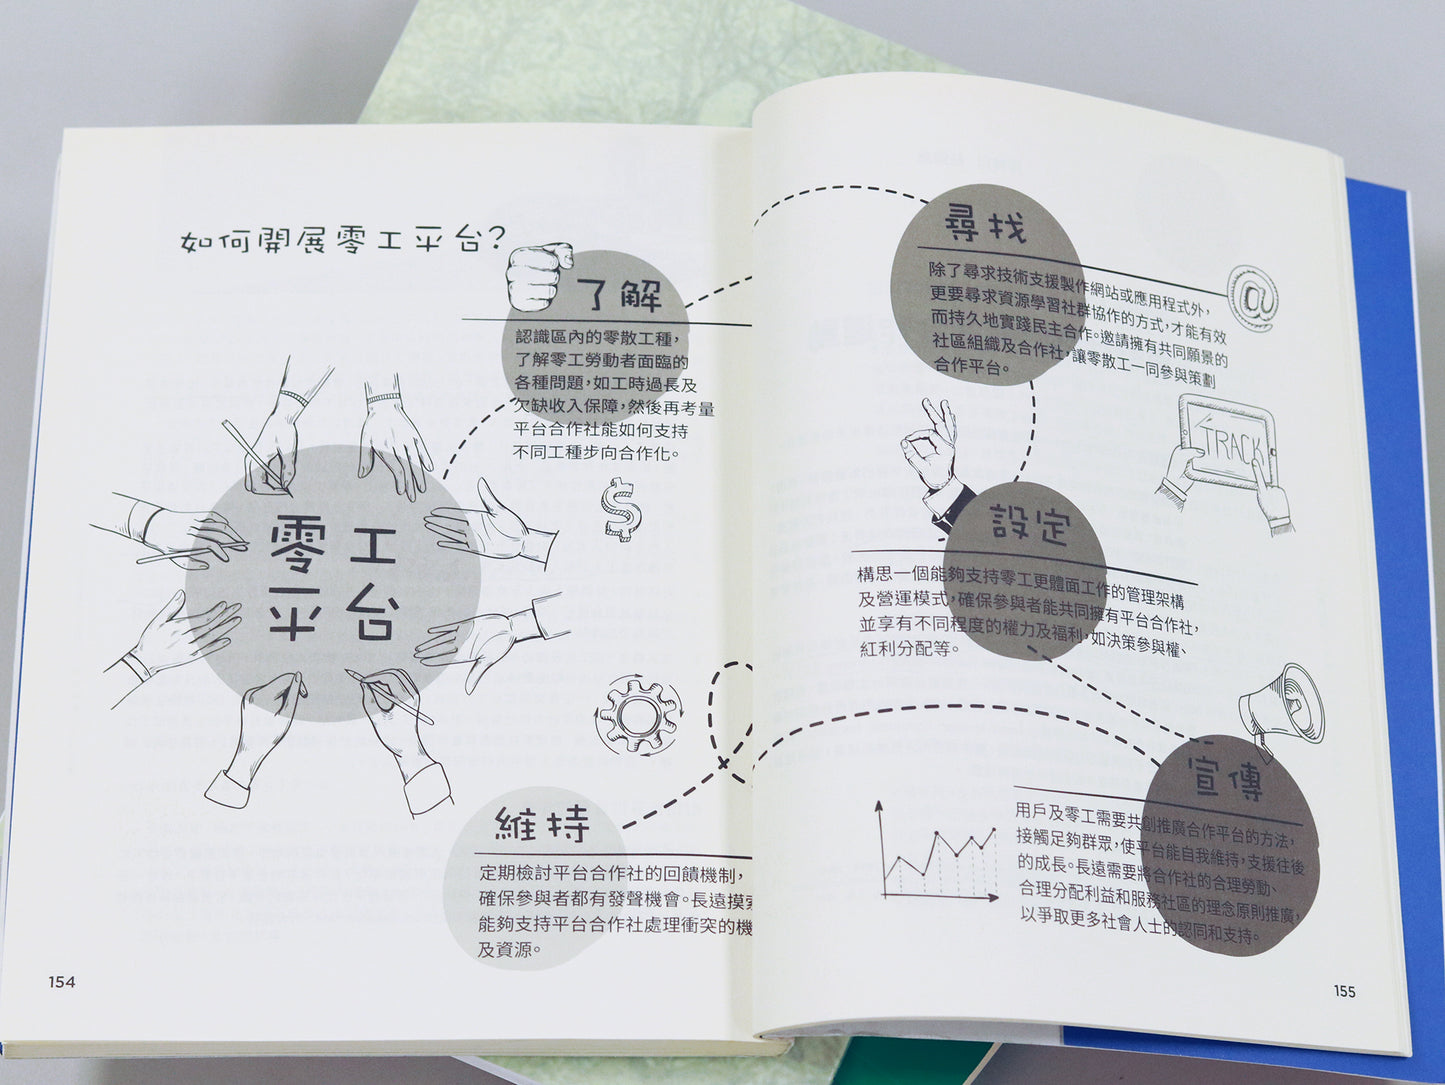 如何開展零工平台?
了解
認識區內的零散工種，
了解零工勞動者面臨的
各種問題，如工時過長及
欠缺收入保障，然後再考量
平台合作社能如何支持
不同工種步向合作化。
零工
平台
$
維持
定期檢討平台合作社的回饋機制，
確保參與者都有發聲機會。長遠摸索
能夠支持平台合作社處理衝突的機
及資源。
154
尋找
除了尋求技術支援製作網站或應用程式外，
更要尋求資源學習社群協作的方式，才能有效
而持久地實踐民主合作。邀請擁有共同願景的
社區組織及合作社，讓零散工一同參與策劃
合作平台。
@
TRACK
設定
構思一個能夠支持零工更體面工作的管理架構
及營運模式，確保參與者能共同擁有平台合作社，
並享有不同程度的權力及福利，如決策參與權、
紅利分配等。
宣傳
用戶及零工需要共創推廣合作平台的方法，
接觸足夠群眾，使平台能自我維持，支援往後
的成長。長遠需要將合作社的合理勞動、
合理分配利益和服務社區的理念原則推廣，
以爭取更多社會人士的認同和支持。
155